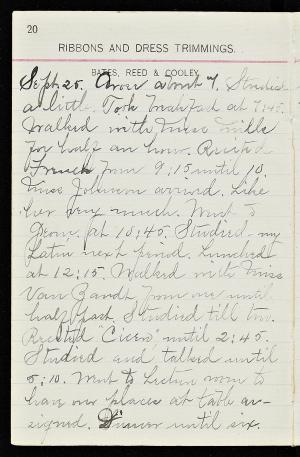 20
RIBBONS AND DRESS TRIMMINGS.
BATES, REED & COOLEY.
Sept. 25. Arose about 7. Studied
a little. Took breakfast at 7:45.
Walked with Miss Mills
for half an hour. Recited
French from 9:15 until 10.
Miss Johnson arrived. Like
her very much. Went to
Geom. at 10:45. Studied my
Latin next period. Lunched
at 12:15. Walked with Miss
Van Zandt from one until
half past. Studied till two.
Recited "Cicero" until 2:45.
Studied and talked until
5:10. Went to lecture room to
have our places at table as-
signed. Dinner until six.